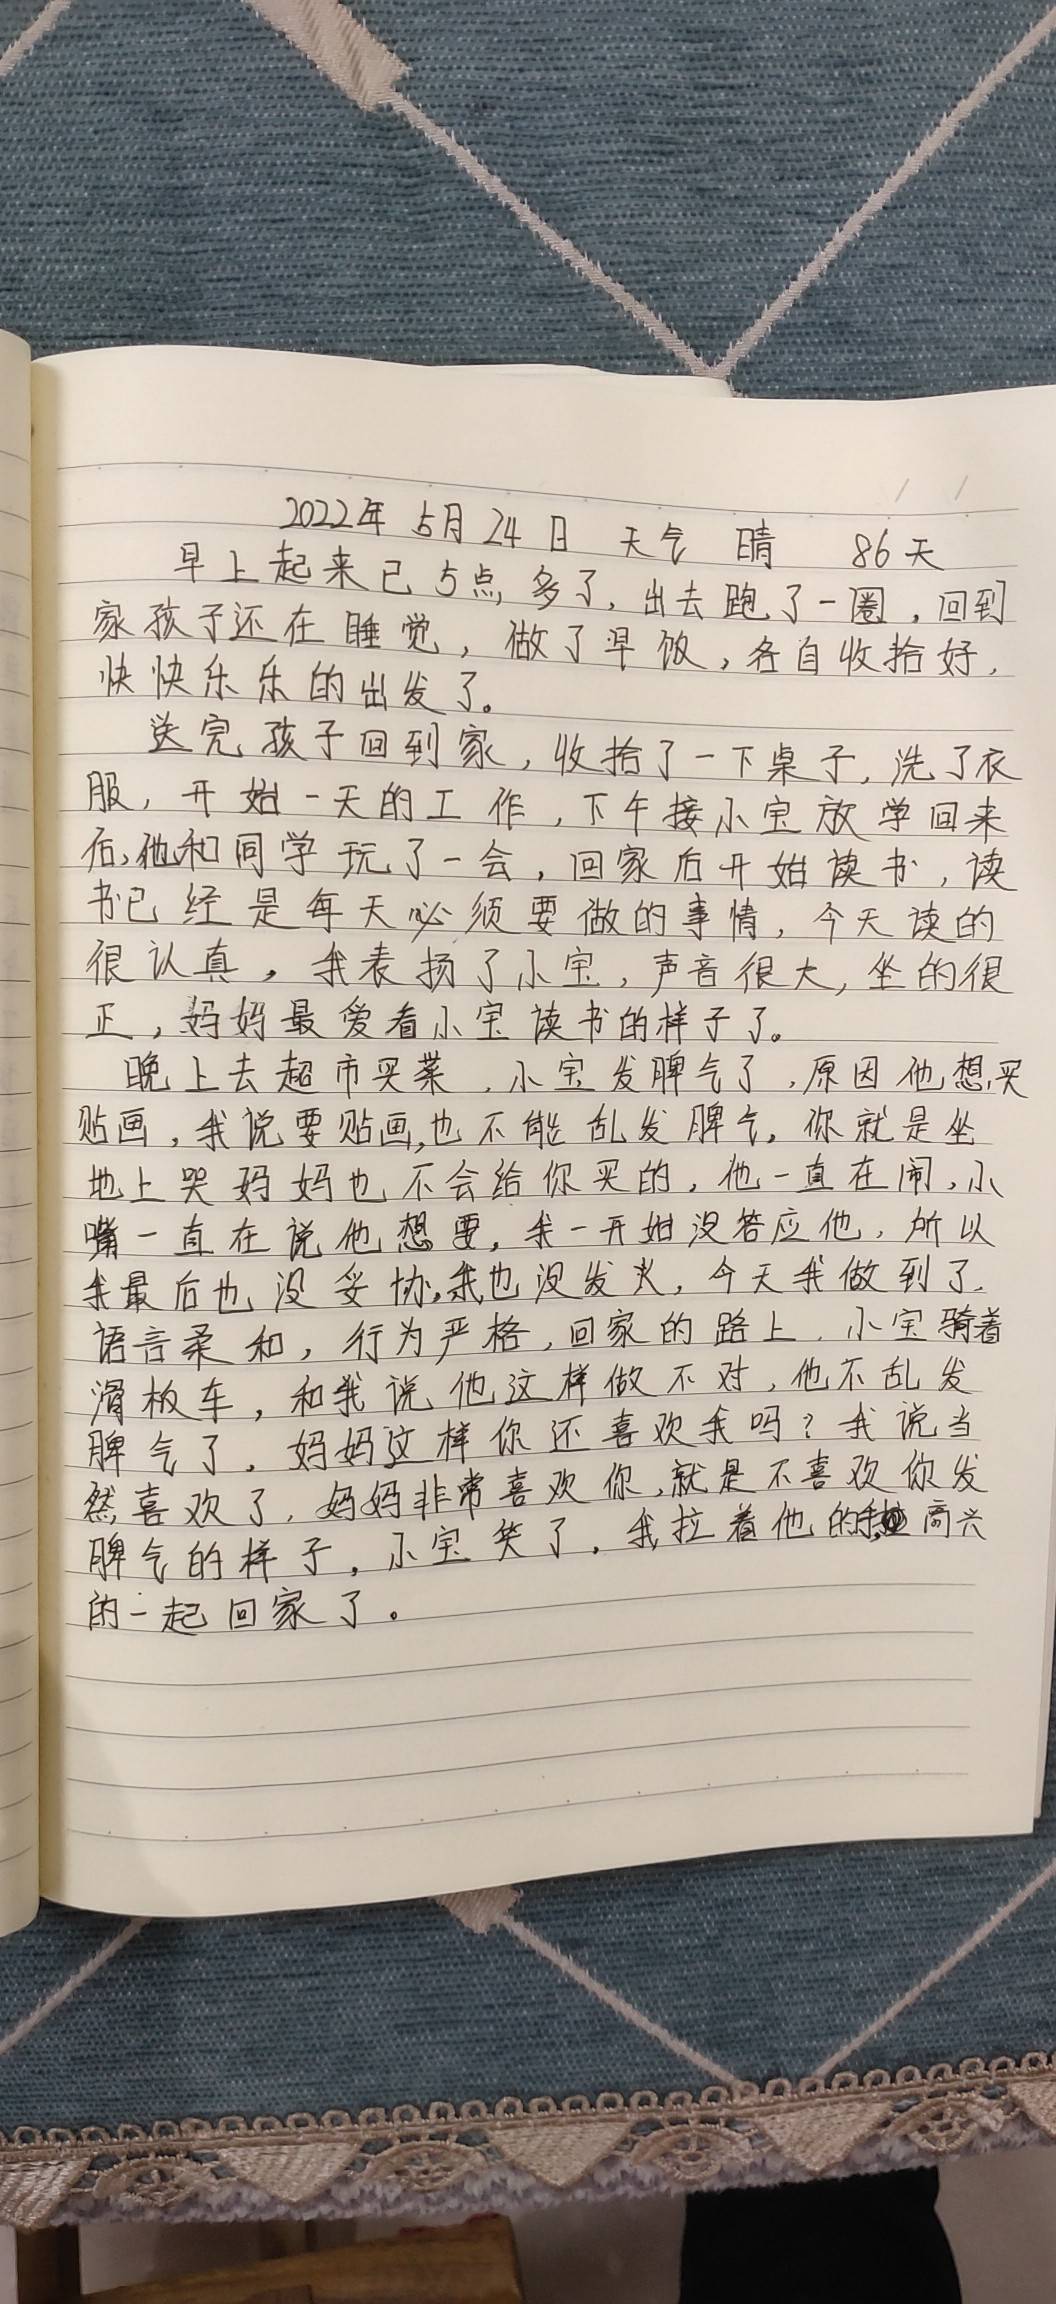 2022年 5月 24日 天气 晴 86天
早上起来已5点多了，出去跑了一圈，回到
家孩子还在睡觉，做了早饭，各自收拾好，
快快乐乐的出发了。
送完孩子回到家，收拾了一下桌子，洗了衣
服，开始一天的工作，下午接小宝放学回来
后，他和同学玩了一会，回家后开始读书，读
书已经是每天必须要做的事情，今天读的
很认真，我表扬了小宝，声音很大，坐的很
正，妈妈最爱看小宝读书的样子了。
晚上去超市买菜，小宝发脾气了，原因他想买
贴画，我说要贴画，也不能乱发脾气，你就是坐
地上哭妈妈也不会给你买的，他一直在闹，小
嘴一直在说他想要，我一开始没答应他，所以
我最后也没妥协，我也没发火，今天我做到了，
语言柔和，行为严格，回家的路上，小宝骑着
滑板车，和我说他这样做不对，他不乱发
脾气了，妈妈这样你还喜欢我吗？我说当
然喜欢了，妈妈非常喜欢你，就是不喜欢你发
脾气的样子，小宝笑了，我拉着他的高兴
的一起回家了。